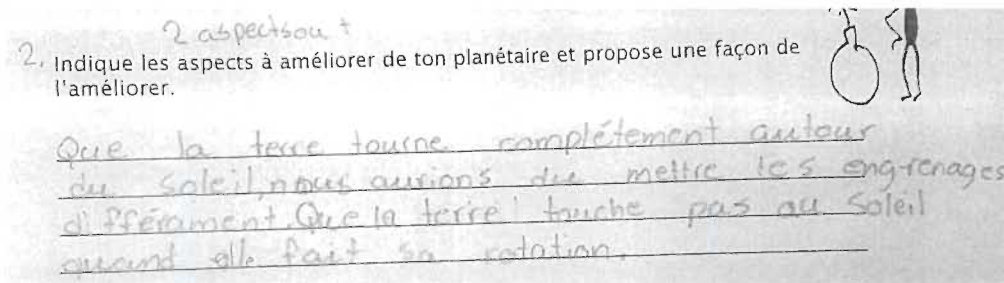 2 aspects ou +
2. Indique les aspects à améliorer de ton planétaire et propose une façon de
l'améliorer.
Que la terre tourne complétement autour
du soleil, nous aurions du mettre les engrenages
différament. Que la terre touche pas au soleil
quand elle fait sa rotation.